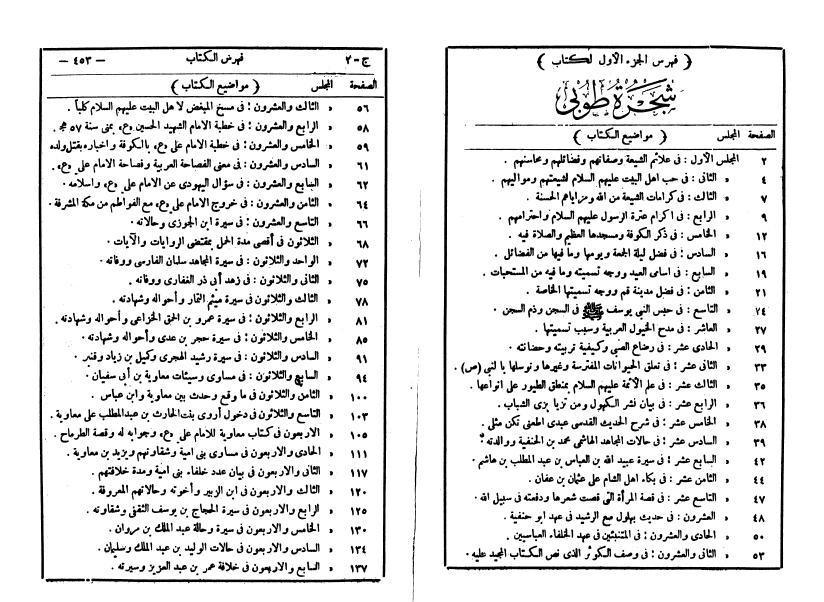 ( فهرس الجزء الاول لكتاب )
شجرة طوبى
الصفحة المجلس ( مواضيع الكتاب )
٢ المجلس الأول : فى علائم الشيعة وصفاتهم وفضائلهم ومحاسنهم .
٤ « الثانى : فى حب اهل البيت عليهم السلام لشيعتهم ومواليهم .
٧ « الثالث : فى كرامات الشيعة من الله ومزاياهم الحسنة .
٩ « الرابع : فى اكرام عترة الرسول عليهم السلام واحترامهم .
١٢ « الخامس : فى ذكر الكوفة ومسجدها العظيم والصلاة فيه .
١٦ « السادس : فى فضل ليلة الجمعة ويومها وما فيها من الفضائل .
١٩ « السابع : فى اسامى العيد ووجه تسميته وما فيه من المستحبات .
٢١ « الثامن : فى فضل مدينة قم ووجه تسميتها الخاصة .
٢٤ « التاسع : فى حبس النبي يوسف ﷺ فى السجن وذم السجن .
٢٧ « العاشر : فى مدح الخيول العربية وسبب تسميتها .
٢٩ « الحادى عشر : فى رضاع الصبى وكيفية تربيته وحضانته .
٣٣ « الثانى عشر : فى تعلق الحيوانات المفترسة وغيرها وتوسلها بالنبي (ص) .
٣٥ « الثالث عشر : فى علم الأئمة عليهم السلام بمنطق الطيور على انواعها .
٣٦ « الرابع عشر : فى بيان نشر الكهول ومن تزيا بزى الشباب .
٣٨ « الخامس عشر : فى شرح الحديث القدسى عبدى اطعنى تكن مثلى .
٣٩ « السادس عشر : فى حالات المجاهد الهاشمى محمد بن الحنفية ووالدته .
٤٢ « السابع عشر : فى سيرة عبيد الله بن العباس بن عبد المطلب بن هاشم .
٤٤ « الثامن عشر : فى بكاء اهل الشام على عثمان بن عفان .
٤٧ « التاسع عشر : فى قصة المرأة التى قصت شعرها ودفعته فى سبيل الله .
٤٨ « العشرون : فى حديث بهلول مع الرشيد فى عهد ابو حنفية .
٥٠ « الحادى والعشرون : فى المتنبئين فى عهد الخلفاء العباسيين .
٥٣ « الثانى والعشرون : فى وصف الكوثر الذى نص الكتاب المجيد عليه .
ج - ٢ فهرس الكتاب — ٤٥٣ —
الصفحة المجلس ( مواضيع الكتاب )
٥٦ « الثالث والعشرون : فى مسخ المبغض لاهل البيت عليهم السلام كلباً .
٥٨ « الرابع والعشرون : فى خطبة الامام الشهيد الحسين «ع» بمنى سنة ٥٧ هج .
٥٩ « الخامس والعشرون : فى خطبة الامام على «ع» بالكوفة واخباره بقتل ولده
٦١ « السادس والعشرون : فى معنى الفصاحة العربية وفصاحة الامام على «ع» .
٦٢ « السابع والعشرون : فى سؤال اليهودى عن الامام على «ع» واسلامه .
٦٤ « الثامن والعشرون : فى خروج الامام على «ع» مع الفواطم من مكة المشرفة .
٦٦ « التاسع والعشرون : فى سيرة ابن الجوزى وحالاته .
٦٨ « الثلاثون فى أقصى مدة الحمل بمقتضى الروايات والآيات .
٧٢ « الواحد والثلاثون : فى سيرة المجاهد سلمان الفارسى ووفاته .
٧٥ « الثانى والثلاثون : فى زهد أبى ذر الغفارى ووفاته .
٧٨ « الثالث والثلاثون : فى سيرة ميثم التمار وأحواله وشهادته .
٨١ « الرابع والثلاثون : فى سيرة عمرو بن الحمق الخزاعى وأحواله وشهادته .
٨٥ « الخامس والثلاثون : فى سيرة حجر بن عدى وأحواله وشهادته .
٩١ « السادس والثلاثون : فى سيرة رشيد الهجرى وكميل بن زياد وقنبر .
٩٤ « السابع والثلاثون : فى مساوى وسيئات معاوية بن أبى سفيان .
١٠٠ « الثامن والثلاثون : فى ما وقع وحدث بين معاوية وابن عباس .
١٠٣ « التاسع والثلاثون فى دخول أروى بنت الحارث بن عبد المطلب على معاوية .
١٠٥ « الاربعون فى كتاب معاوية للامام على «ع» وجوابه له وقصة الطرماح .
١١١ « الحادى والاربعون فى مساوى بنى امية وشقاوتهم ويزيد بن معاوية .
١١٧ « الثانى والاربعون فى بيان عدد خلفاء بنى امية ومدة خلافتهم .
١٢٠ « الثالث والاربعون فى ابن الزبير وأخوته وحالاتهم المعروفة .
١٢٥ « الرابع والاربعون فى سيرة الحجاج بن يوسف الثقفى وشقاوته .
١٣٠ « الخامس والاربعون فى سيرة وحالة عبد الملك بن مروان .
١٣٤ « السادس والاربعون فى حالات الوليد بن عبد الملك وسليمان .
١٣٧ « السابع والاربعون فى خلافة عمر بن عبد العزيز وسيرته .